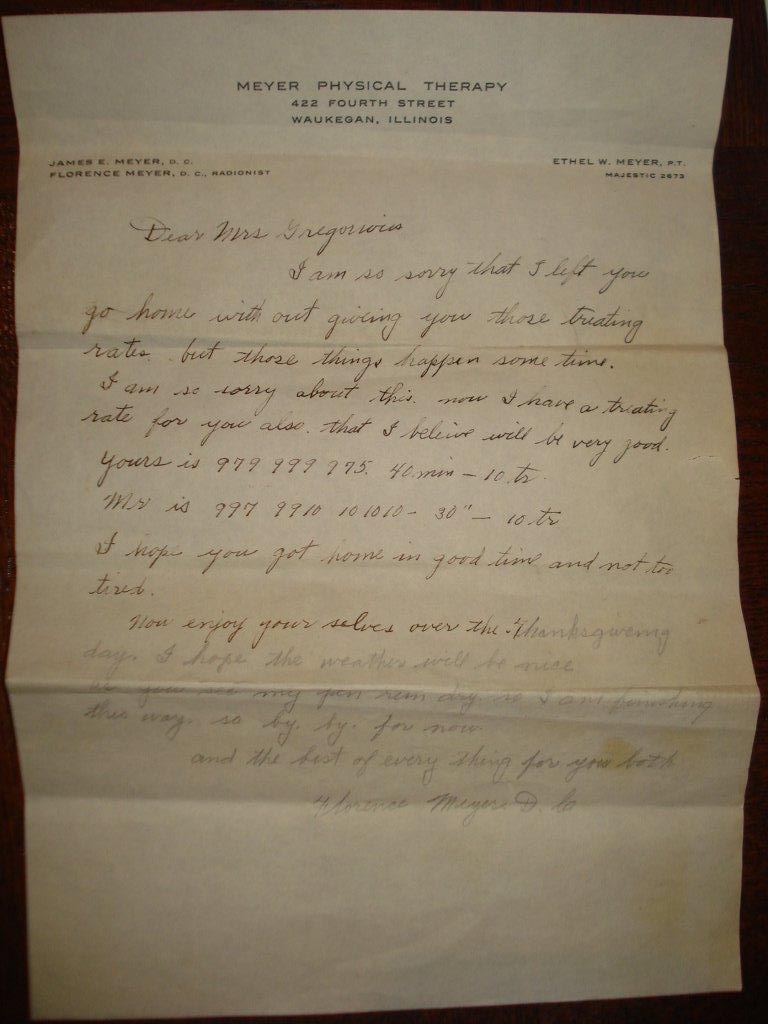 MEYER PHYSICAL THERAPY
422 FOURTH STREET
WAUKEGAN, ILLINOIS
JAMES E. MEYER, D. C.
FLORENCE MEYER, D. C., RADIONIST
ETHEL W. MEYER, P.T.
MAJESTIC 2673
Dear Mrs
I am so sorry that I left you
go home with out giveing you those treating
rates. but those things happen some time.
I am so sorry about this. now I have a treating
rate for you also. that I beleive will be very good.
Yours is 979 999 975. 40 min - 10 tr.
Mr is 997 9910 101010 - 30" - 10 tr
I hope you got home in good time and not too
tired.
Now enjoy your selves over the Thanksgiveing
day. I hope the weather will be nice
you see my pen run dry. so I am finishing
this way. so by. by. for now.
and the best of every thing for you both
Florence Meyer D. C.